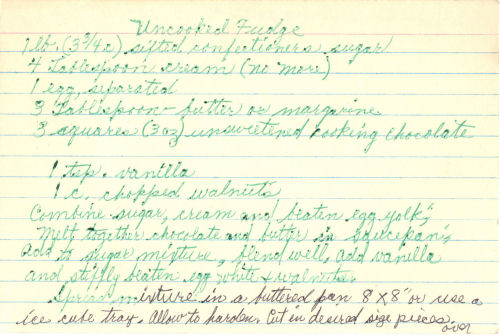 Uncooked Fudge
1 lb. (3 3/4 c) sifted confectioners sugar
4 Tablespoon cream (no more)
1 egg, separated
3 Tablespoon - butter or margarine
3 squares (3 oz) unsweetened cooking chocolate
1 tsp. vanilla
1 c. chopped walnuts
Combine sugar, cream and beaten egg yolk;
Melt together chocolate and butter in saucepan;
Add to sugar mixture, blend well, add vanilla
and stiffly beaten egg white & walnuts.
Spread mixture in a buttered pan 8X8" or use a
ice cube tray. Allow to harden. Cut in desired size pieces.
over